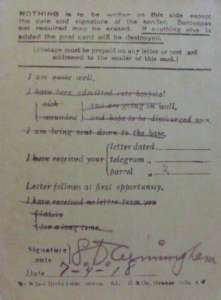 NOTHING is to be written on this side except
the date and signature of the sender. Sentences
not required may be erased. If anything else is
added the post card will be destroyed.
[Postage must be prepaid on any letter or post card
addressed to the sender of this card.]
I am quite well.
I have been admitted into hospital
sick and am going on well.
wounded and hope to be discharged soon
I am being sent down to the base.
letter dated
I have received your telegram „
parcel „
Letter follows at first opportunity.
I have received no letter from you
lately
for a long time.
Signature
only
S. D. Cunningham
Date 7-9-18